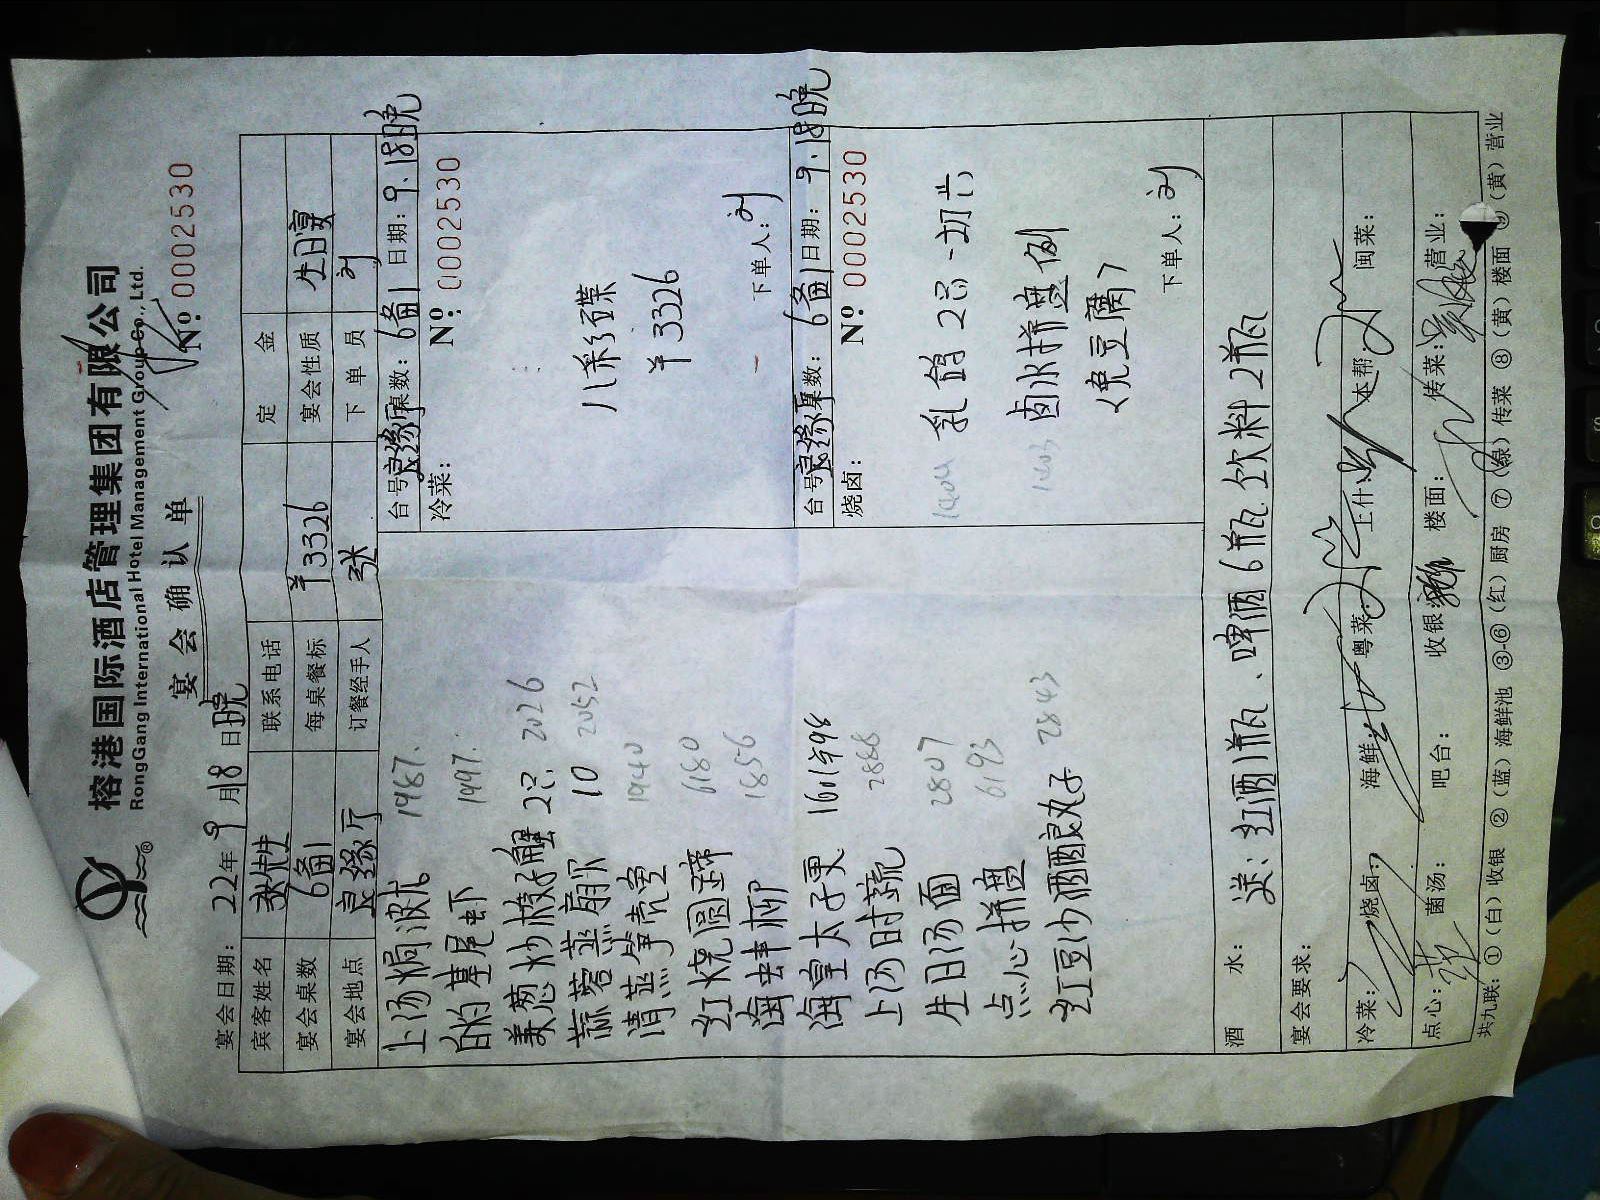 榕港国际酒店管理集团有限公司
RongGang International Hotel Management Group Co., Ltd.
宴会确认单
№: 0002530
宴会日期: 22年9月18日晚
宾客姓名 联系电话 定金
宴会桌数 6备1 每桌餐标 ¥3326 宴会性质 生日宴
宴会地点 良缘厅 订餐经手人 张 下单员 刘
上汤焗波龙 1987.
白灼基尾虾 1997.
姜葱炒梭子蟹 2只 2026
蒜蓉蒸扇贝 10 2052
清蒸笋壳鱼 1940
红烧圆蹄 6180
海蚌柳 1856
海皇太子更 1601
上汤时蔬 2888
生日汤面 2807
点心拼盘 6193
红豆沙酒酿丸子 2843
台号: 良缘厅 桌数: 6备1 日期: 9.18晚
冷菜: №: 0002530
八彩碟
¥3326
下单人: 刘
台号: 良缘厅 桌数: 6备1 日期: 9.18晚
烧卤: №: 0002530
1404 乳鸽 2只 一切六
1403 卤水拼盘 例
<免豆腐>
下单人: 刘
酒水: 送: 红酒1瓶、啤酒6瓶 饮料2瓶
宴会要求:
冷菜: 烧卤: 海鲜: 粤菜: 上什: 本帮: 闽菜:
点心: 菌汤: 吧台: 收银: 楼面: 传菜: 营业:
共九联: ①(白)收银 ②(蓝)海鲜池 ③-⑥(红)厨房 ⑦(绿)传菜 ⑧(黄)楼面 ⑨(黄)营业